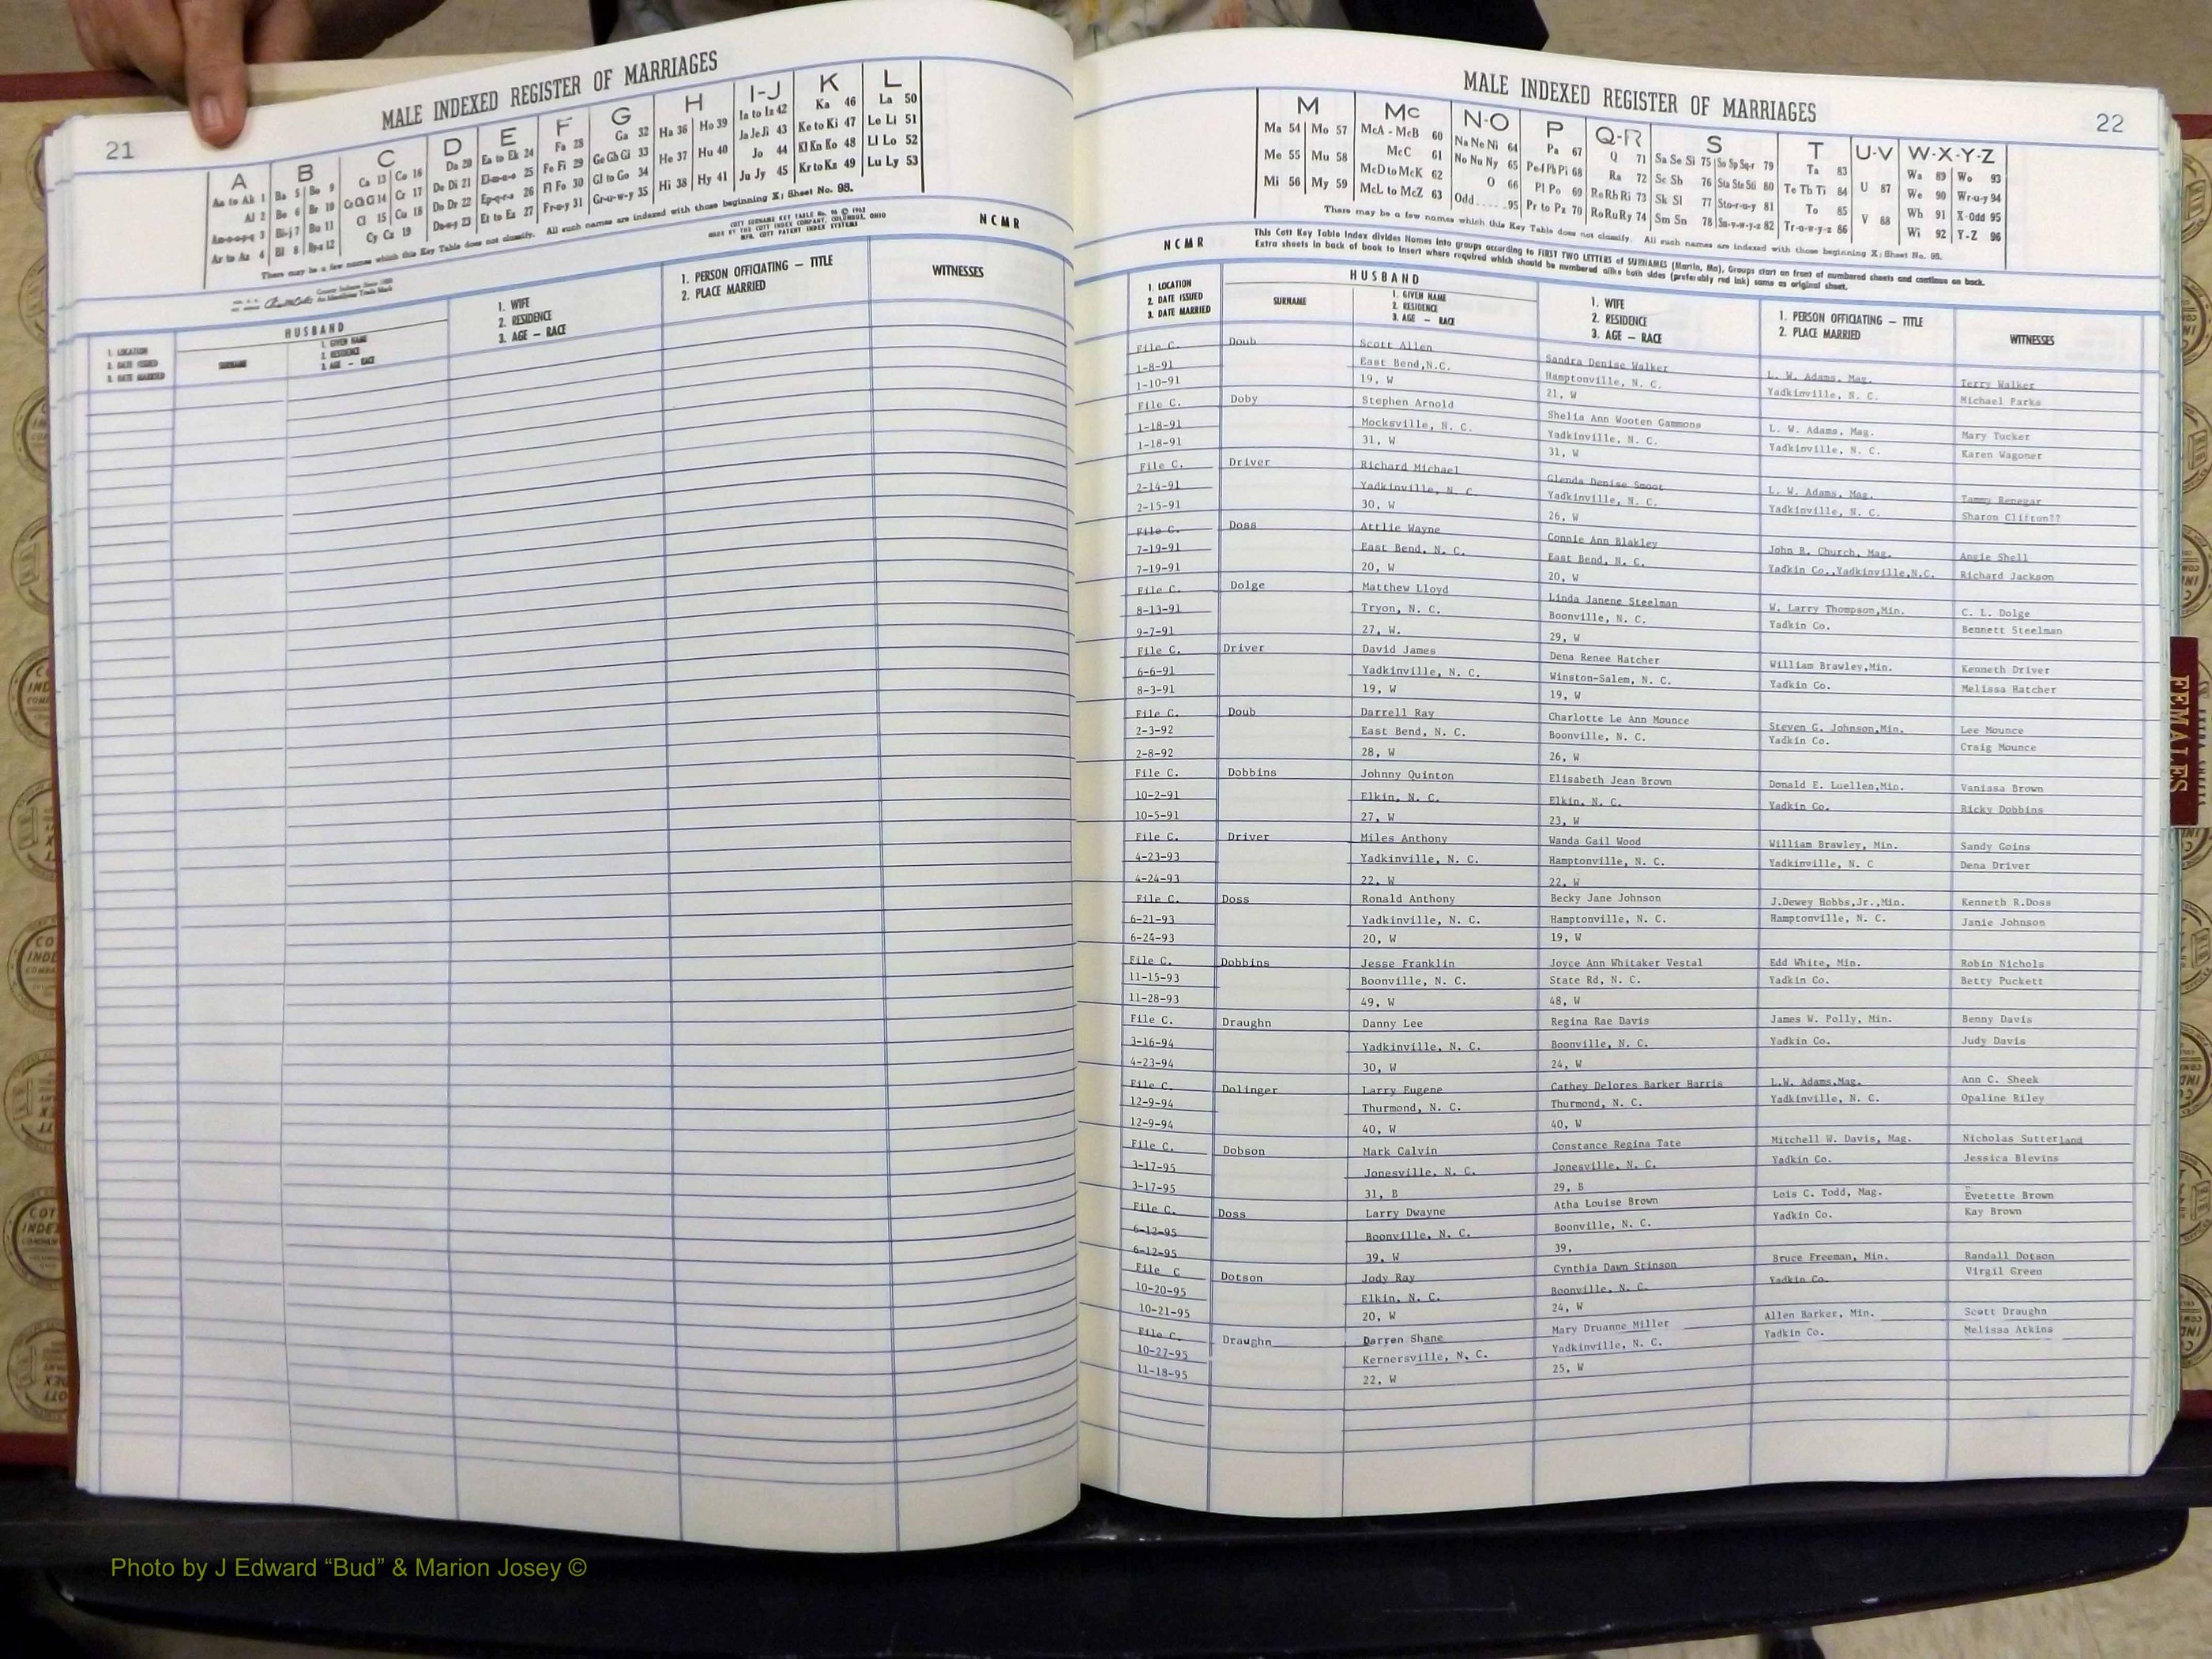 MALE INDEXED REGISTER OF MARRIAGES
21
A
Aa to Ak 1
Al 2
Am-n-o-p-q 3
Ar to Az 4
B
Ba 5 | Bo 9
Be 6 | Br 10
Bi-j 7 | Bu 11
Bl 8 | Bya 12
C
Ca 13 | Co 16
Ce Ch Ci 14 | Cr 17
Cl 15 | Cu 18
Cy Cz 19
D
Da 20
De Di 21
Do Dr 22
Du-w-y 23
E
Ea to Ek 24
El-m-n-o 25
Ep-q-r-s 26
Et to Ez 27
F
Fa 28
Fe Fi 29
Fl Fo 30
Fr-u-y 31
G
Ga 32
Ge Gh Gi 33
Gl to Go 34
Gr-u-w-y 35
H
Ha 36 | Ho 39
He 37 | Hu 40
Hi 38 | Hy 41
I-J
Ia to Iz 42
Ja Je Ji 43
Jo 44
Ju Jy 45
K
Ka 46
Ke to Ki 47
Kl Kn Ko 48
Kr to Kz 49
L
La 50
Le Li 51
Ll Lo 52
Lu Ly 53
There may be a few names which this Key Table does not classify. All such names are indexed with those beginning X; Sheet No. 95.
COTT SURNAME KEY TABLE No. 96 © 1962
MADE BY THE COTT INDEX COMPANY, COLUMBUS, OHIO
MFG. COTT PATENT INDEX SYSTEMS
NCMR
1. LOCATION
2. DATE ISSUED
3. DATE MARRIED
HUSBAND
SURNAME
1. GIVEN NAME
2. RESIDENCE
3. AGE — RACE
1. WIFE
2. RESIDENCE
3. AGE — RACE
1. PERSON OFFICIATING — TITLE
2. PLACE MARRIED
WITNESSES
MALE INDEXED REGISTER OF MARRIAGES
22
M
Ma 54 | Mo 57
Me 55 | Mu 58
Mi 56 | My 59
Mc
McA - McB 60
McC 61
McD to McK 62
McL to McZ 63
N-O
Na Ne Ni 64
No Nu Ny 65
O 66
Odd.....95
P
Pa 67
Pe Pf Ph Pi 68
Pl Po 69
Pr to Pz 70
Q-R
Q 71
Ra 72
Re Rh Ri 73
Ro Ru Ry 74
S
Sa Se Si 75 | So Sp Sq-r 79
Sc Sh 76 | Sta Ste Sti 80
Sk Sl 77 | Sto-r-u-y 81
Sm Sn 78 | Su-v-w-y-z 82
T
Ta 83
Te Th Ti 84
To 85
Tr-u-w-y-z 86
U-V
U 87
V 88
W-X-Y-Z
Wa 89 | Wo 93
We 90 | Wr-u-y 94
Wh 91 | X-Odd 95
Wi 92 | Y-Z 96
There may be a few names which this Key Table does not classify. All such names are indexed with those beginning X; Sheet No. 95.
This Cott Key Table Index divides Names into groups according to FIRST TWO LETTERS of SURNAMES (Martin, Ma), Groups start on front of numbered sheets and continue on back.
Extra sheets in back of book to insert where required which should be numbered alike both sides (preferably red ink) same as original sheet.
NCMR
1. LOCATION
2. DATE ISSUED
3. DATE MARRIED
HUSBAND
SURNAME
1. GIVEN NAME
2. RESIDENCE
3. AGE — RACE
1. WIFE
2. RESIDENCE
3. AGE — RACE
1. PERSON OFFICIATING — TITLE
2. PLACE MARRIED
WITNESSES
File C. Doub Scott Allen Sandra Denise Walker L. W. Adams, Mag. Terry Walker
1-8-91 East Bend,N.C. Hamptonville, N. C. Yadkinville, N. C. Michael Parks
1-10-91 19, W 21, W
File C. Doby Stephen Arnold Shelia Ann Wooten Gammons L. W. Adams, Mag. Mary Tucker
1-18-91 Mocksville, N. C. Yadkinville, N. C. Yadkinville, N. C. Karen Wagoner
1-18-91 31, W 31, W
File C. Driver Richard Michael Glenda Denise Smoot L. W. Adams, Mag. Tammy Renegar
2-14-91 Yadkinville, N. C. Yadkinville, N. C. Yadkinville, N. C. Sharon Clifton??
2-15-91 30, W 26, W
File C. Doss Attlie Wayne Connie Ann Blakley John R. Church, Mag. Angie Shell
7-19-91 East Bend, N. C. East Bend, N. C. Yadkin Co.,Yadkinville,N.C. Richard Jackson
7-19-91 20, W 20, W
File C. Dolge Matthew Lloyd Linda Janene Steelman W. Larry Thompson,Min. C. L. Dolge
8-13-91 Tryon, N. C. Boonville, N. C. Yadkin Co. Bennett Steelman
9-7-91 27, W. 29, W
File C. Driver David James Dena Renee Hatcher William Brawley,Min. Kenneth Driver
6-6-91 Yadkinville, N. C. Winston-Salem, N. C. Yadkin Co. Melissa Hatcher
8-3-91 19, W 19, W
File C. Doub Darrell Ray Charlotte Le Ann Mounce Steven G. Johnson,Min. Lee Mounce
2-3-92 East Bend, N. C. Boonville, N. C. Yadkin Co. Craig Mounce
2-8-92 28, W 26, W
File C. Dobbins Johnny Quinton Elisabeth Jean Brown Donald E. Luellen,Min. Vanissa Brown
10-2-91 Elkin, N. C. Elkin, N. C. Yadkin Co. Ricky Dobbins
10-5-91 27, W 23, W
File C. Driver Miles Anthony Wanda Gail Wood William Brawley, Min. Sandy Goins
4-23-93 Yadkinville, N. C. Hamptonville, N. C. Yadkinville, N. C Dena Driver
4-24-93 22, W 22, W
File C. Doss Ronald Anthony Becky Jane Johnson J.Dewey Hobbs,Jr.,Min. Kenneth R.Doss
6-21-93 Yadkinville, N. C. Hamptonville, N. C. Hamptonville, N. C. Janie Johnson
6-24-93 20, W 19, W
File C. Dobbins Jesse Franklin Joyce Ann Whitaker Vestal Edd White, Min. Robin Nichols
11-15-93 Boonville, N. C. State Rd, N. C. Yadkin Co. Betty Puckett
11-28-93 49, W 48, W
File C. Draughn Danny Lee Regina Rae Davis James W. Polly, Min. Benny Davis
3-16-94 Yadkinville, N. C. Boonville, N. C. Yadkin Co. Judy Davis
4-23-94 30, W 24, W
File C. Dolinger Larry Eugene Cathey Delores Barker Harris L.W. Adams,Mag. Ann C. Sheek
12-9-94 Thurmond, N. C. Thurmond, N. C. Yadkinville, N. C. Opaline Riley
12-9-94 40, W 40, W
File C. Dobson Mark Calvin Constance Regina Tate Mitchell W. Davis, Mag. Nicholas Sutterland
3-17-95 Jonesville, N. C. Jonesville, N. C. Yadkin Co. Jessica Blevins
3-17-95 31, B 29, B
File C. Doss Larry Dwayne Atha Louise Brown Lois C. Todd, Mag. Evetette Brown
6-12-95 Boonville, N. C. Boonville, N. C. Yadkin Co. Kay Brown
6-12-95 39, W 39,
File C Dotson Jody Ray Cynthia Dawn Stinson Bruce Freeman, Min. Randall Dotson
10-20-95 Elkin, N. C. Boonville, N. C. Yadkin Co. Virgil Green
10-21-95 20, W 24, W
File C. Draughn Darren Shane Mary Druanne Miller Allen Barker, Min. Scott Draughn
10-27-95 Kernersville, N. C. Yadkinville, N. C. Yadkin Co. Melissa Atkins
11-18-95 22, W 25, W
FEMALES
Photo by J Edward “Bud” & Marion Josey ©